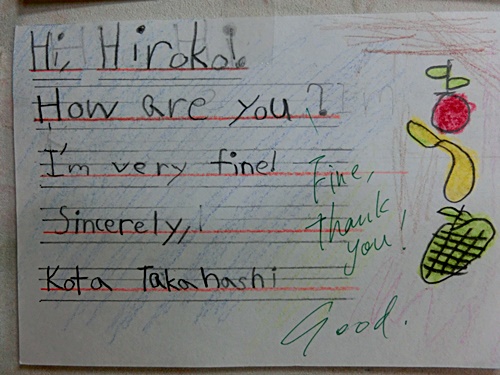 Hi, Hiroko!
How are you?
I'm very fine!
Fine,
Sincerely,
thank
you!
Kota Takahashi
Good.